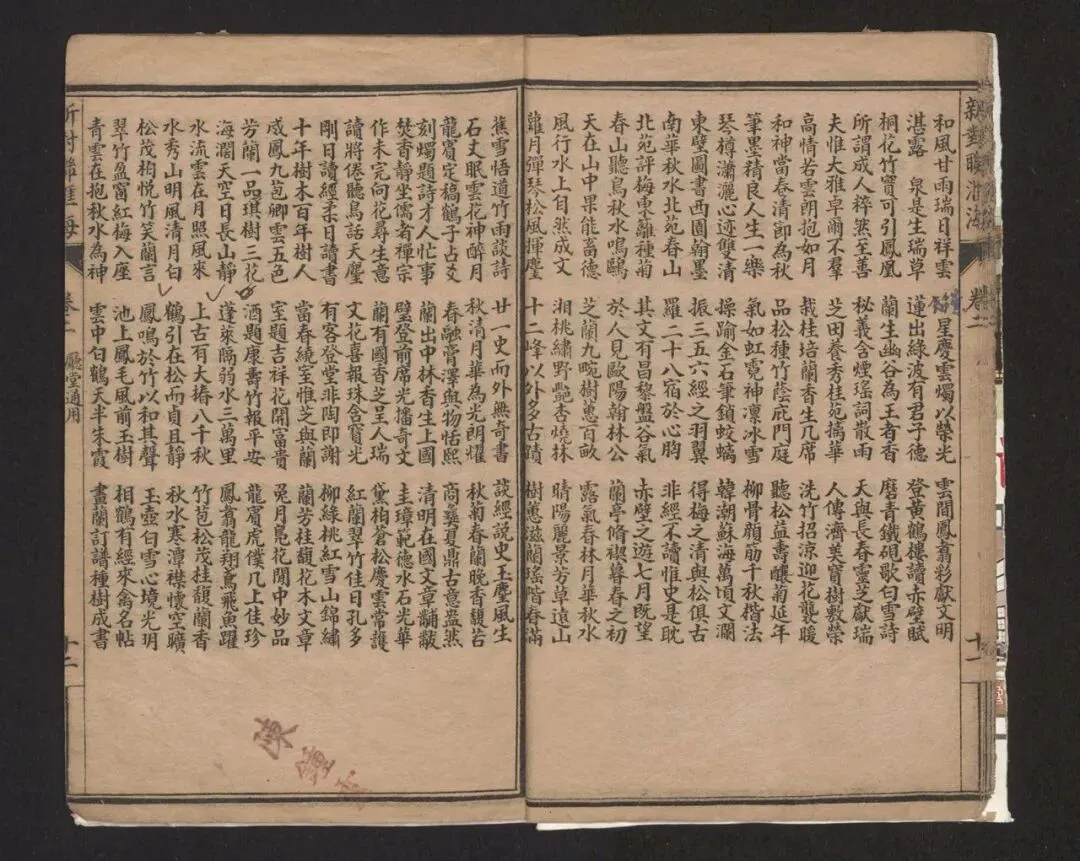 新對聯滙海 卷二 十一
和風甘雨瑞日祥雲 星慶雲燭以榮光 雲閒鳳翥彩獻文明
湛露 泉是生瑞草 蓮出綠波有君子德 登黃鶴樓讀赤壁賦
桐花竹實可引鳳凰 蘭生幽谷為王者香 磨青鐵硯歌白雪詩
所謂成人粹然至善 秘義含煙瑤詞散雨 天與長春靈芝獻瑞
夫惟大雅卓爾不羣 芝田養秀桂苑摛華 人傳濟美寶樹敷榮
高情若雲朗抱如月 栽桂培蘭香生几席 洗竹招涼迎花襲暖
和神當春清節為秋 品松種竹蔭庇門庭 聽松益壽釀菊延年
筆墨精良人生一樂 氣如虹霓神凜冰雪 柳骨顏筋千秋楷法
琴樽瀟灑心迹雙清 操踰金石筆鎖蛟螭 韓潮蘇海萬頃文瀾
東壁圖書西園翰墨 振三五六經之羽翼 得梅之清與松俱古
南華秋水北苑春山 羅二十八宿於心胸 非經不讀惟史是耽
北苑評梅東離種菊 其文有昌黎盤谷氣 赤壁之遊七月既望
春山聽鳥秋水鳴鷗 於人見歐陽翰林公 蘭亭脩禊暮春之初
天在山中果能畜德 芝蘭九畹樹蕙百畝 露氣春林月華秋水
風行水上自然成文 湘桃繡野艷杏燒林 晴陽麗景芳草遠山
蘿月彈琴松風揮麈 十二峰以外多古蹟 樹蕙滋蘭瑤階春滿
蕉雪悟道竹雨談詩 廿一史而外無奇書 談經說史玉麈風生
石丈眠雲花神醉月 秋清月華為光朗耀 秋菊春蘭晚香馥苔
龍賓定稿鶴子占爻 春融膏澤與物恬熙 商彝夏鼎古意盎然
刻燭題詩才人忙事 蘭出中林香生上國 清明在國文章黼黻
焚香靜坐儒者禪宗 壁登前席光播奇文 圭璋範德水石光華
作未完向花尋生意 蘭有國香芝呈人瑞 黛柏蒼松慶雲常護
讀將倦聽鳥話天麈 文花喜報珠含寶光 紅蘭翠竹佳日孔多
剛日讀經柔日讀書 有客登堂非陶即謝 柳綠桃紅雪山錦繡
十年樹木百年樹人 當春繞室惟芝與蘭 蘭芳桂馥花木文章
成鳳九苞卿雲五色 室題吉祥花開富貴 兔月鳧花閒中妙品
芳蘭一品琪樹三花 酒題康壽竹報平安 龍賓虎僕几上佳珍
海濶天空日長山靜 蓬萊隔弱水三萬里 鳳翥龍翔鳶飛魚躍
水流雲在月照風來 上古有大椿八千秋 竹苞松茂桂馥蘭香
水秀山明風清月白 鶴引在松而貞且靜 秋水寒潭襟懷空曠
松茂栢悅竹笑蘭言 鳳鳴於竹以和其聲 玉壺白雪心境光明
翠竹盈窗紅梅入座 池上鳳毛風前玉樹 相鶴有經來禽名帖
青雲在抱秋水為神 雲中白鶴天半朱霞 畫蘭訂譜種樹成書
卷二 廳堂通用 十二